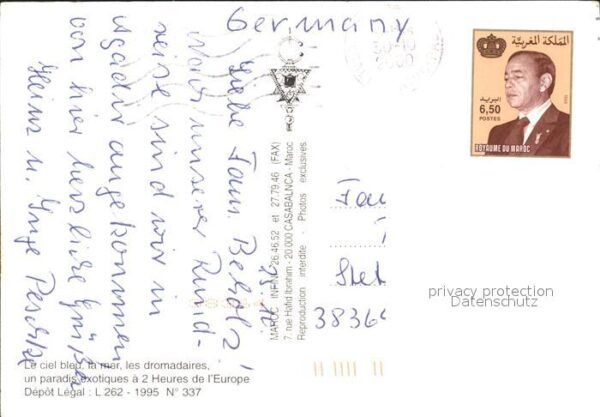 Germany
Liebe Fam.
nach unserer Rund-
reise sind wir in
Agadir angekommen
von hier herzliche Grüße
Heinz u. Inge
30-10
2000
المملكة المغربية
6,50
البريد
POSTES
ROYAUME DU MAROC
Fam
Stet
3836
MAROC INFINI 26.46.52 et 27.79.46 (FAX)
7 rue Hafid Ibrahim - 20 000 CASABALNCA - Maroc
Reproduction interdite - Photos exclusives
privacy protection
Datenschutz
Le ciel bleu, la mer, les dromadaires,
un paradis exotiques à 2 Heures de l'Europe
Dépôt Légal : L 262 - 1995 N° 337